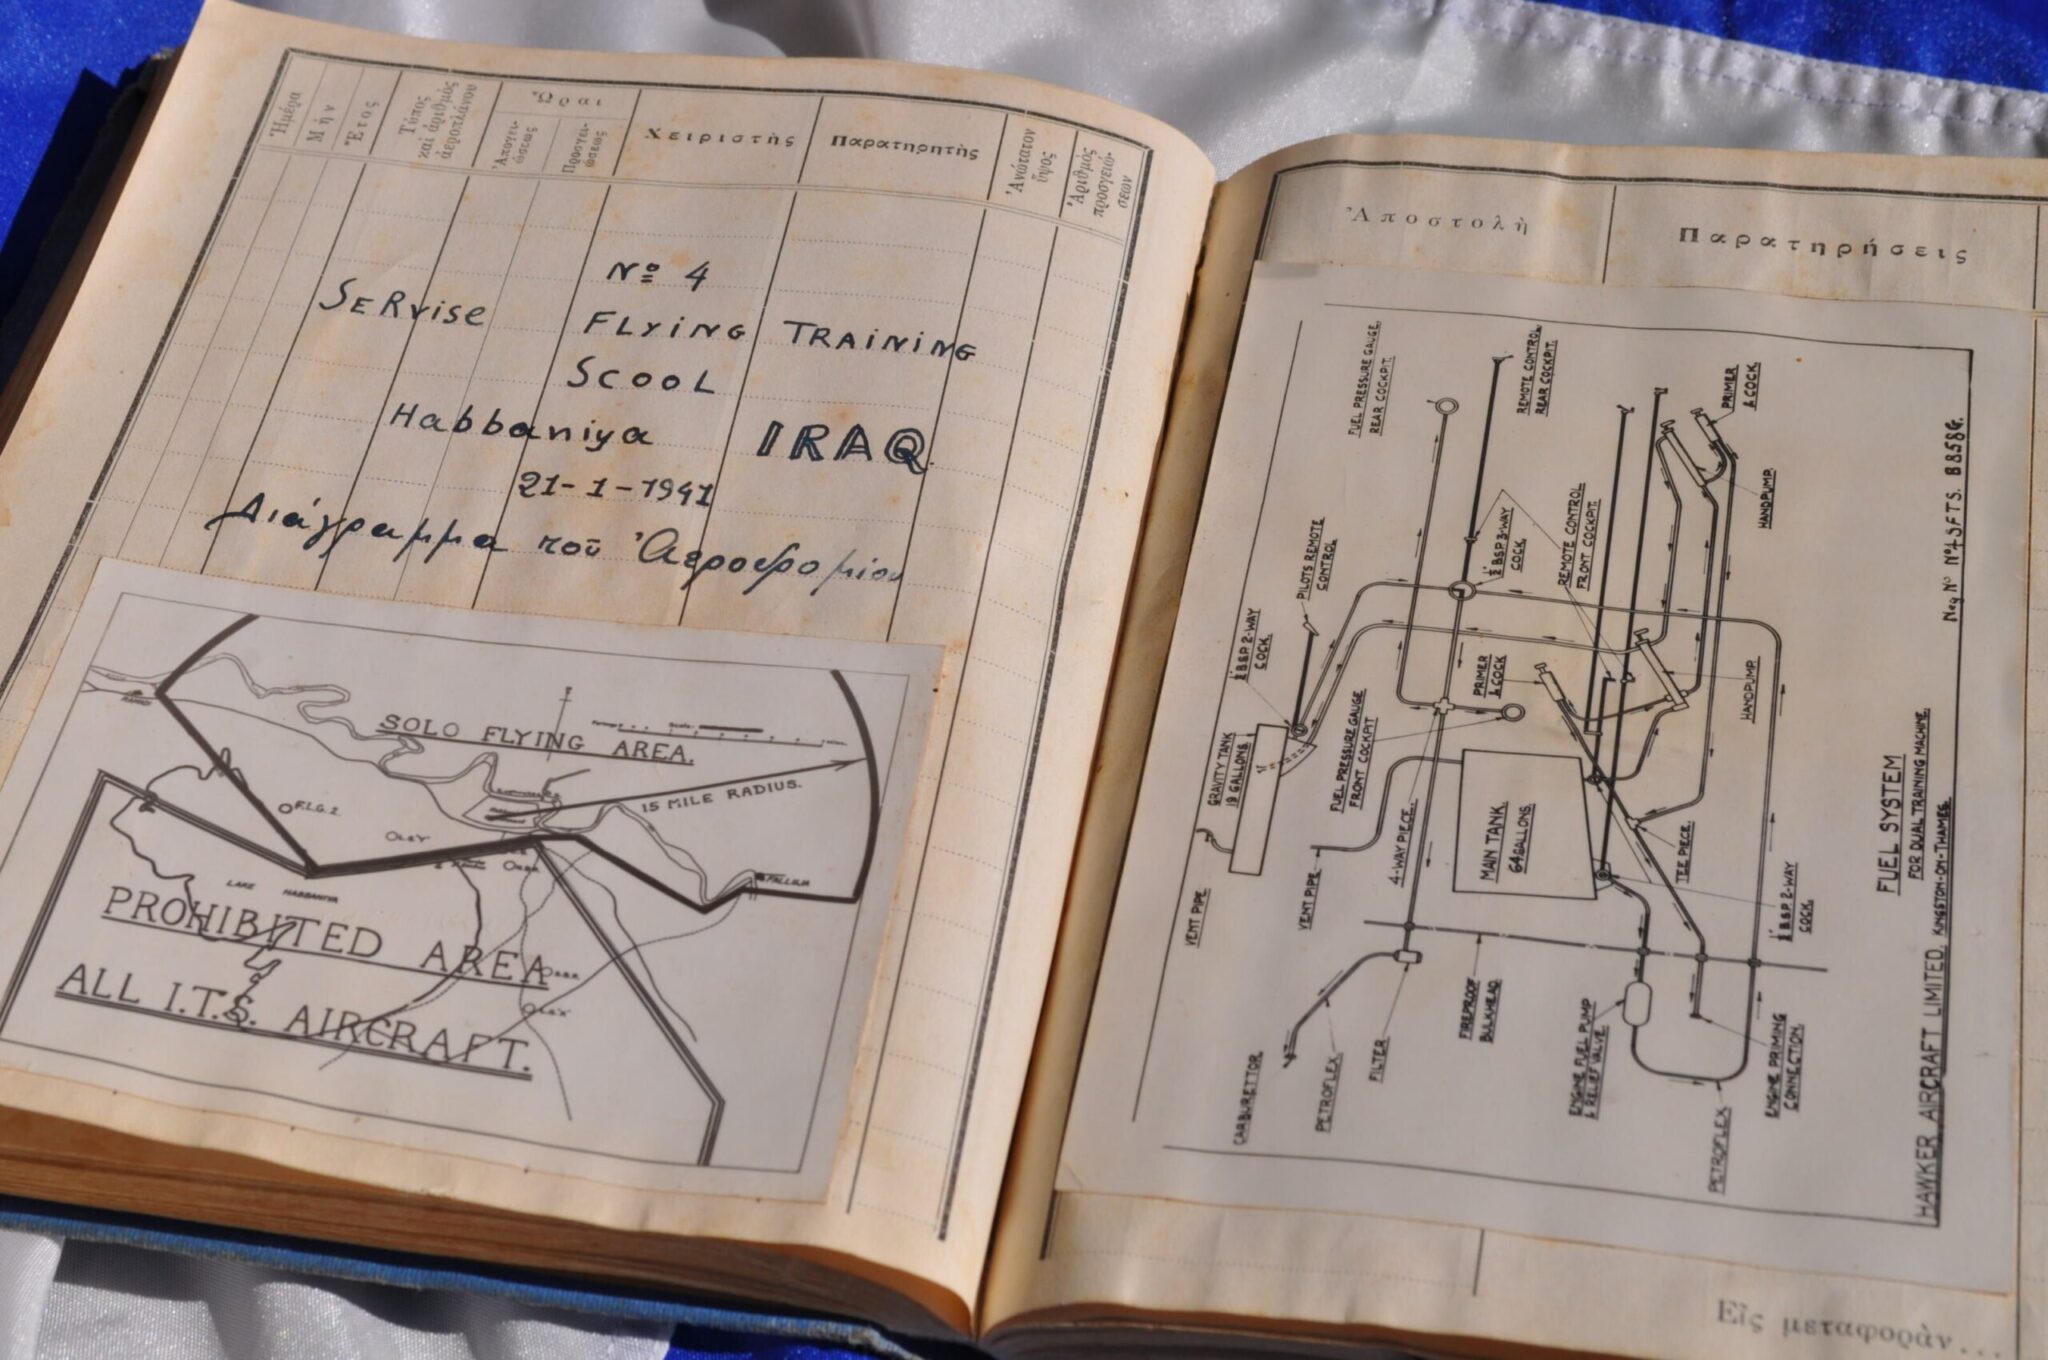 Ἡμέρα
Μήν
Ἔτος
Τύπος
καὶ ἀριθμὸς
ἀεροπλάνου
Ὧραι
Ἀπογει-
ώσεως
Προσγει-
ώσεως
Χειριστὴς
Παρατηρητὴς
Ἀνώτατον
ὕψος
Ἀριθμὸς
προσγειώ-
σεων
Nº 4
SERviSe FLYiNG TRAiNiNG
SCOOL
Habbaniya IRAQ.
21-1-1941
Διάγραμμα τοῦ Ἀεροδρομίου
SOLO FLYING AREA.
15 MILE RADIUS.
F.L.G. 2.
FALLUJA
LAKE HABBANIYA
PROHIBITED AREA
ALL I.T.S. AIRCRAFT.
Ἀποστολὴ
Παρατηρήσεις
FUEL PRESSURE GAUGE
REAR COCKPIT.
REMOTE CONTROL
REAR COCKPIT.
PRIMER
& COCK
HANDPUMP.
PILOTS REMOTE
CONTROL
½" B.S.P. 3-WAY
COCK.
REMOTE CONTROL
FRONT COCKPIT.
B.S.P. 2-WAY
COCK.
PRIMER
& COCK
HANDPUMP.
GRAVITY TANK
19 GALLONS.
FUEL PRESSURE GAUGE
FRONT COCKPIT
VENT PIPE
VENT PIPE.
4-WAY PIECE.
MAIN TANK
64 GALLONS.
TEE PIECE.
B.S.P. 2-WAY
COCK.
CARBURETTOR
PETROFLEX
FILTER
FIREPROOF
BULKHEAD
ENGINE FUEL PUMP
& RELIEF VALVE.
PETROFLEX
ENGINE PRIMING
CONNECTION.
FUEL SYSTEM
FOR DUAL TRAINING MACHINE.
HAWKER AIRCRAFT LIMITED. KINGSTON-ON-THAMES.
Neg Nº Nº4 SFTS. B858G.
Εἰς μεταφορὰν...